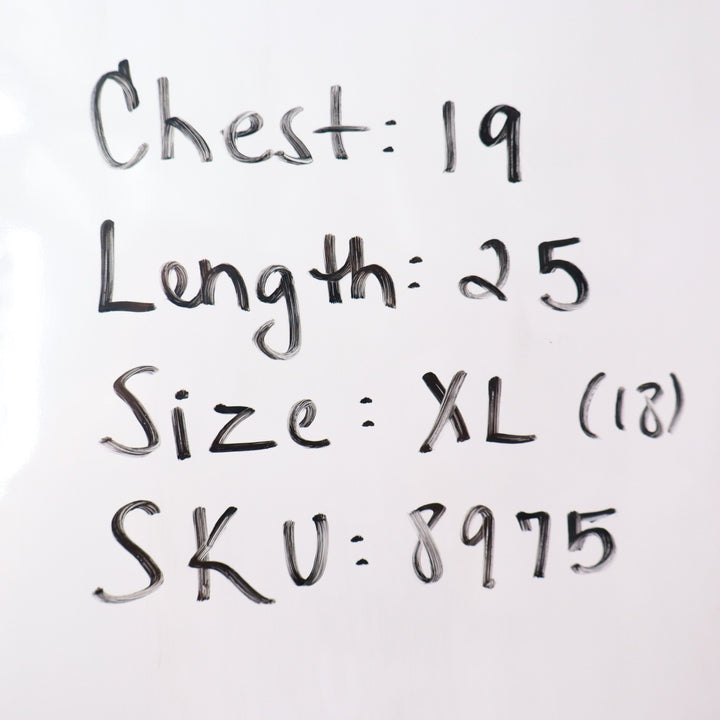 Chest: 19
Length: 25
Size: XL (18)
SKU: 8975